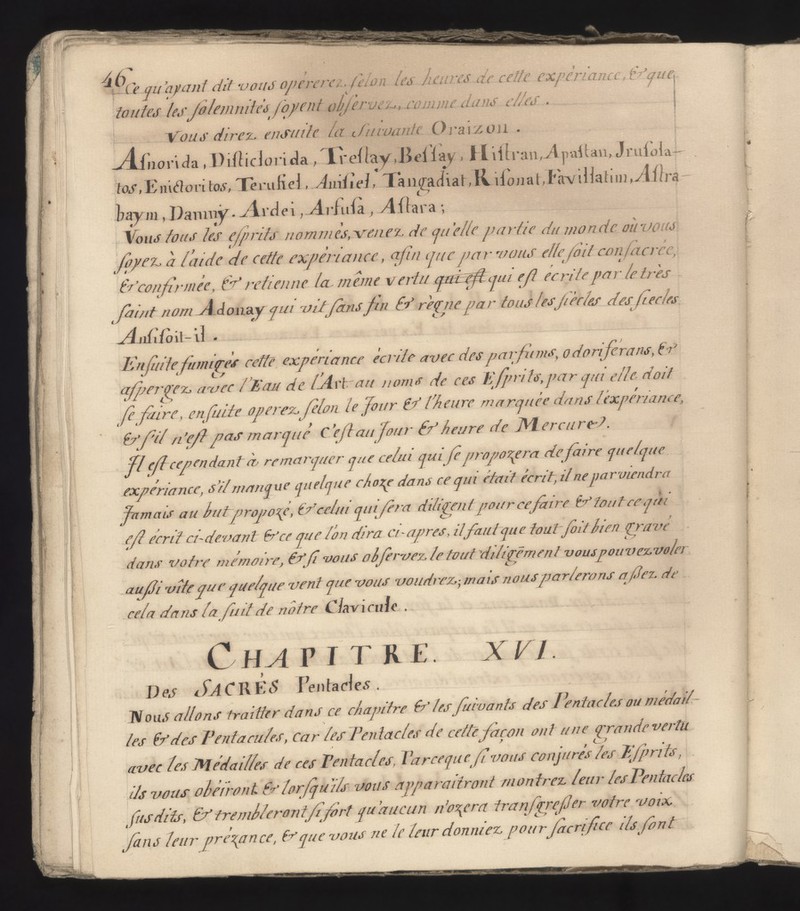 46
Ce qu'ayant dit vous opérerez selon les heures de cette expériance, & que
toutes les solemnités soyent observez, comme dans elles.
Vous direz ensuite la Suivante Oraizon.
Asnorida, Distictorida, Treslay, Beslay, Histran, Apastan, Jrusola-
tos, Enictoritos, Terusiel, Anisiel, Tangadiat, Kisonat, Favillatim, Astra-
baym, Damny. Ardei, Arsusa, Astara;
Vous tous les esprits nommés, venez de qu'elle partie du monde où vous
soyez à l'aide de cette expériance, afin que par vous elle soit consacrée,
& confirmée, & retienne la même vertu qui est qui est écrite par le très
saint nom Adonay qui vit sans fin & règne par tous les siècles des siecles
Ansisoit-il.
Ensuite fumigés cette expériance écrite avec des parfums, odoriférans, &
aspergez avec l'Eau de l'Art au noms de ces Esprits, par qui elle doit
se faire, ensuite operez selon le Jour & l'heure marquée dans l'éxpériance,
& s'il n'est pas marqué C'est au Jour & heure de Mercure.
Jl est cependant à remarquer que celui qui se propozera de faire quelque
expériance, s'il manque quelque choze dans ce qui était écrit, il ne parviendra
Jamais au but propozé, & celui qui sera diligent pour ce faire & tout ce qui
est écrit ci-devant & ce que l'ón dira ci-apres, il faut que tout soit bien gravé
dans votre mémoire, & si vous observez le tout diligêment vous pouvez voler
aussi vîte que quelque vent que vous voudrez; mais nous parlerons assez de
cela dans la suit de nôtre Clavicule.
CHAPITRE. XVI.
Des SACRÉS Pentacles.
Nous allons traitter dans ce chapître & les suivants des Pentacles ou médail-
les & des Pentacules, car les Pentacles de cette façon ont une grande vertu
avec les Médailles de ces Pentacles, Parceque si vous conjurés les Esprits,
ils vous obéïront & lorsqu'ils vous apparaitront montrez leur les Pentacles
susdits, & trembleront si fort qu'aucun n'ozera transgresser votre voix
sans leur prézance, & que vous ne le leur donniez pour sacrifice ils sont